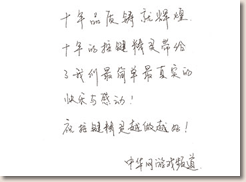 十年品质铸就辉煌
十年的按键精灵带给
了我们最简单最真实的
快乐与感动！
祝按键精灵越做越好！
中华网游戏频道